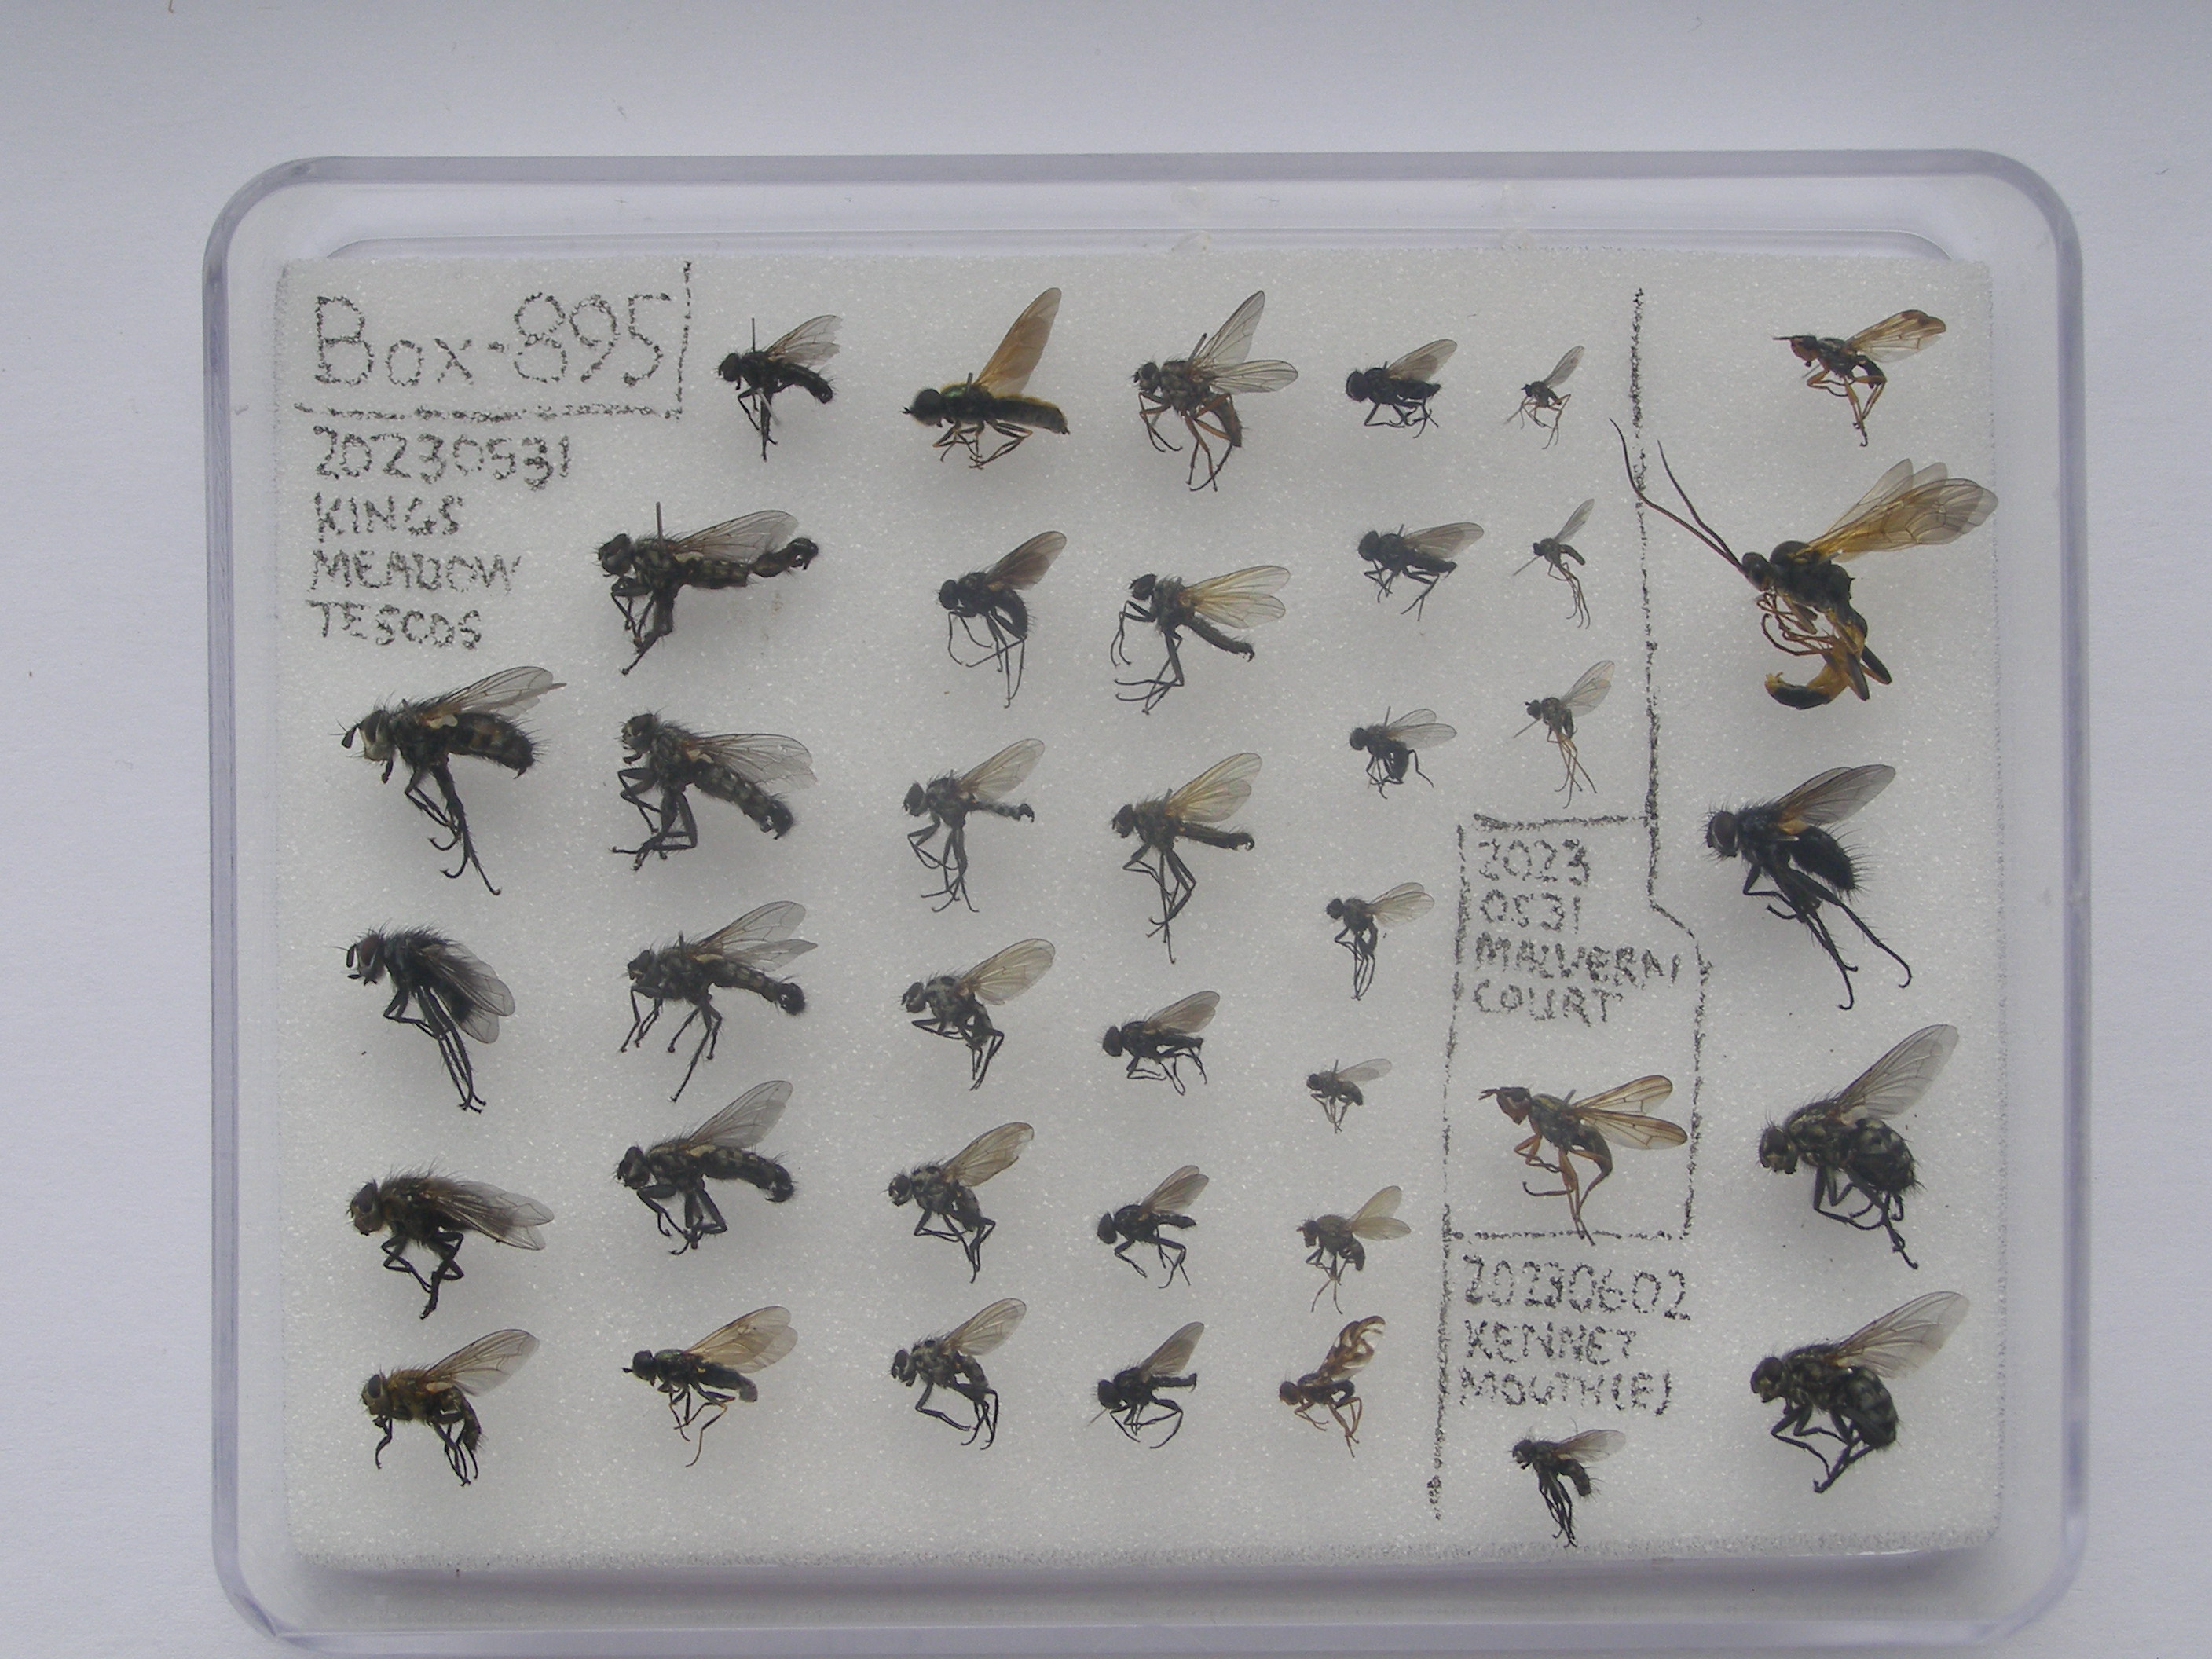 Box-895
20230531
KINGS
MEADOW
TESCOS
2023
0531
MALVERN
COURT
20230602
KENNET
MOUTH(E)